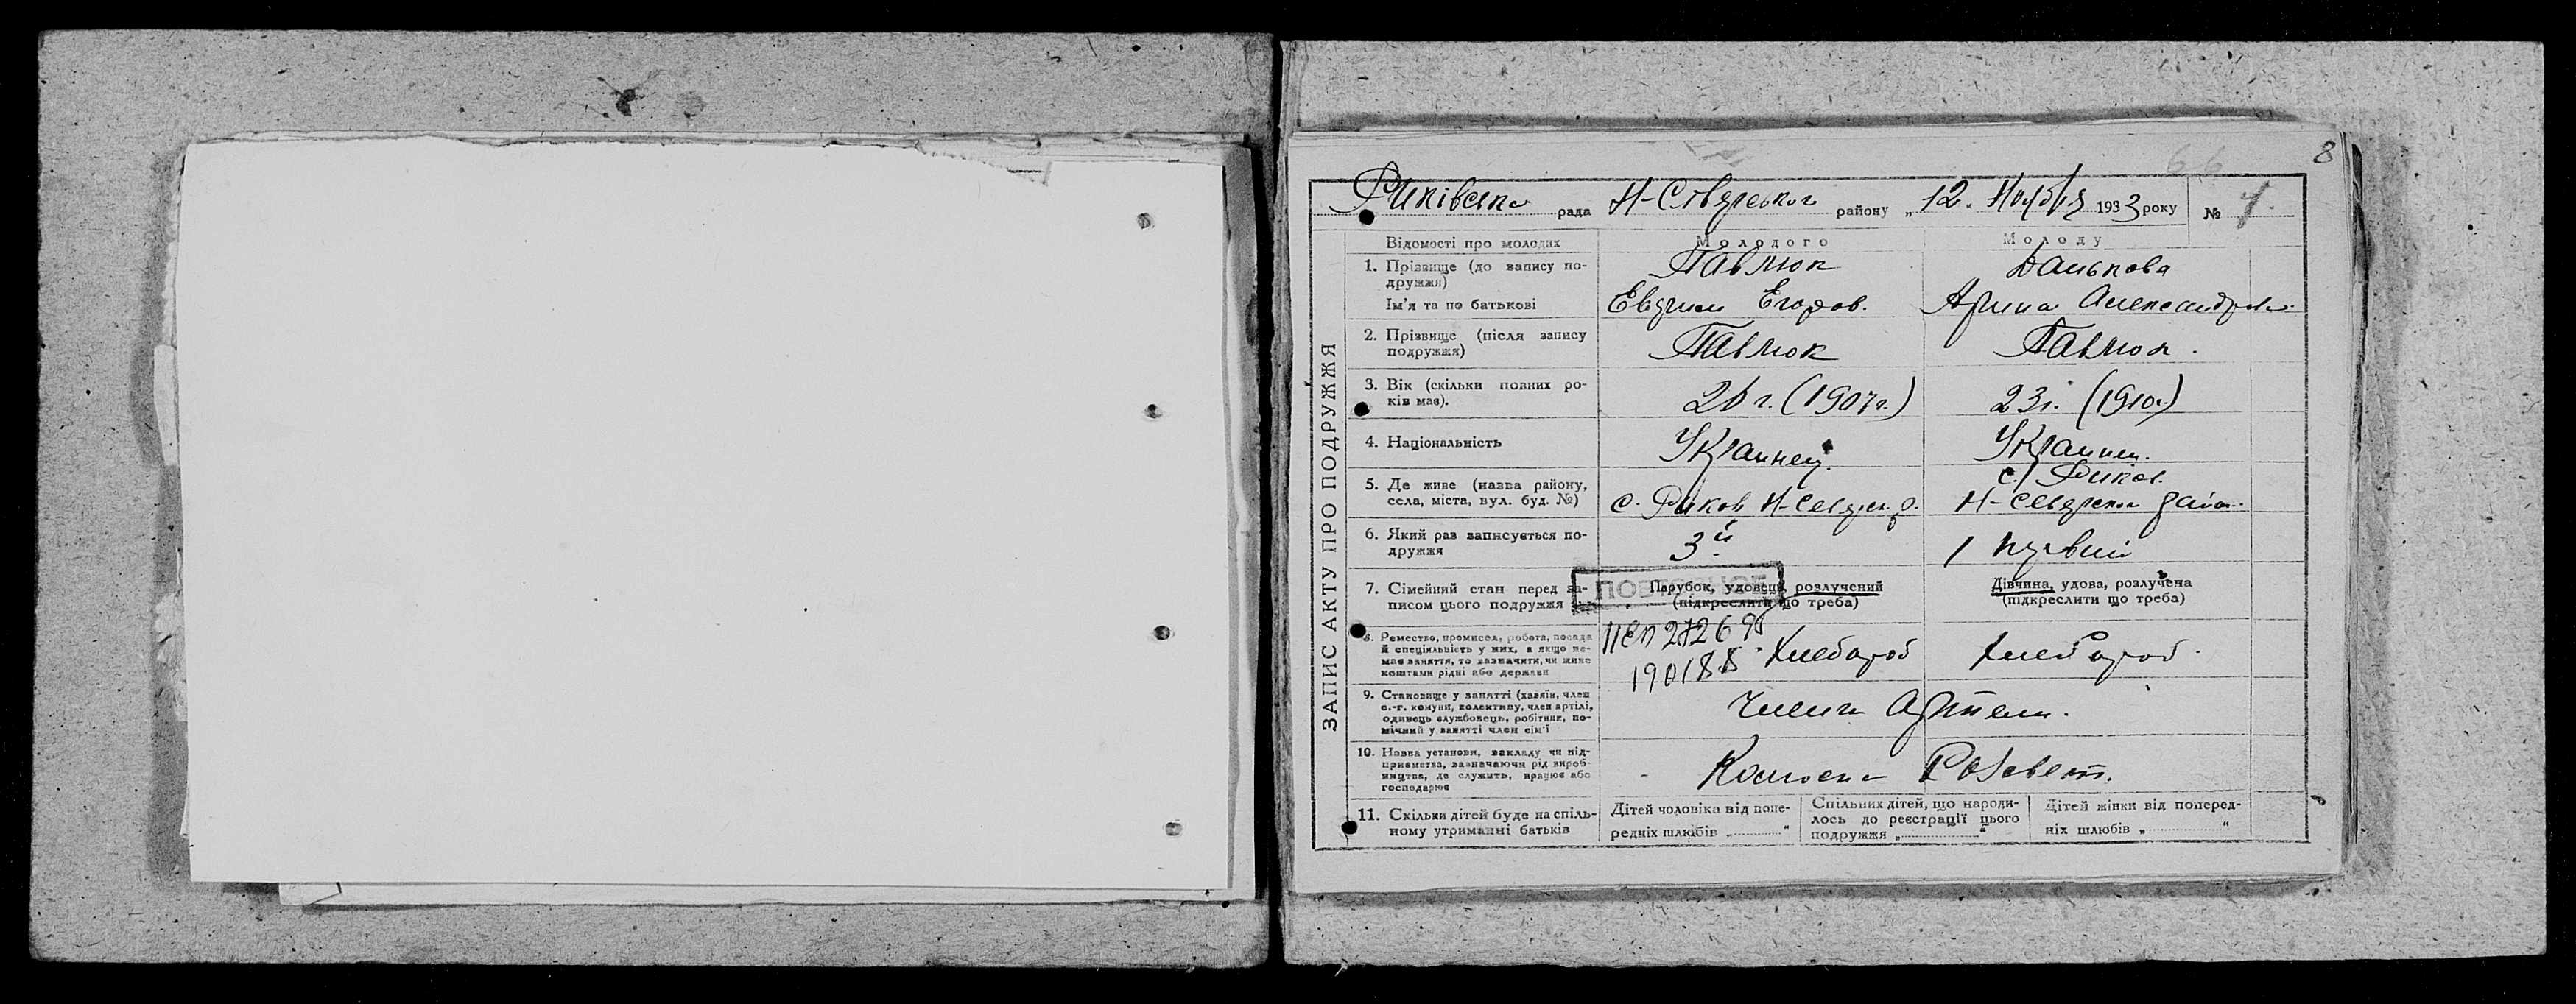 8
66
Риківська рада Н-Сіверського району „12“ Ноября 1933 року № 7.
ЗАПИС АКТУ ПРО ПОДРУЖЖЯ
Відомості про молодих Молодого Молоду
1. Прізвище (до запису по-
дружжя) Павлюк
Ім'я та по батькові Егоров. Арина Александров.
2. Прізвище (після запису
подружжя) Павлюк Павлюк.
3. Вік (скільки повних ро-
ків має). 26 г. (1907 г.) 23 г. (1910 г.)
4. Національність Украинец. Украинец.
5. Де живе (назва району,
села, міста, вул. буд. №) с. Риков Н-Северск. р. с. Риков. Н-Северского район.
6. Який раз записується по-
дружжя 3й 1 первый
ПОВТОРНОЕ
7. Сімейний стан перед за-
писом цього подружжя
Парубок, удовець, розлучений
(підкреслити що треба)
Дівчина, удова, розлучена
(підкреслити що треба)
8. Ремество, промисел, робота, посада
й спеціяльність у них, а якщо не-
має заняття, то зазначити, чи живе
коштами рідні або держави
272690
190188
Хлебороб Хлебороб.
9. Становище у занятті (хазяїн, член
с.-г. комуни, колективу, член артілі,
одинець службовець, робітник, по-
мічний у занятті член сім'ї
Члени Артели.
10. Назва установи, закладу чи під-
приємства, зазначаючи рід вироб-
ництва, де служить, працює або
господарює
Колхоз Розсвет.
11. Скільки дітей буде на спіль-
ному утриманні батьків
Дітей чоловіка від попе-
редніх шлюбів „ “
Спільних дітей, що народи-
лось до реєстрації цього
подружжя „ “
Дітей жінки від поперед-
ніх шлюбів „ “